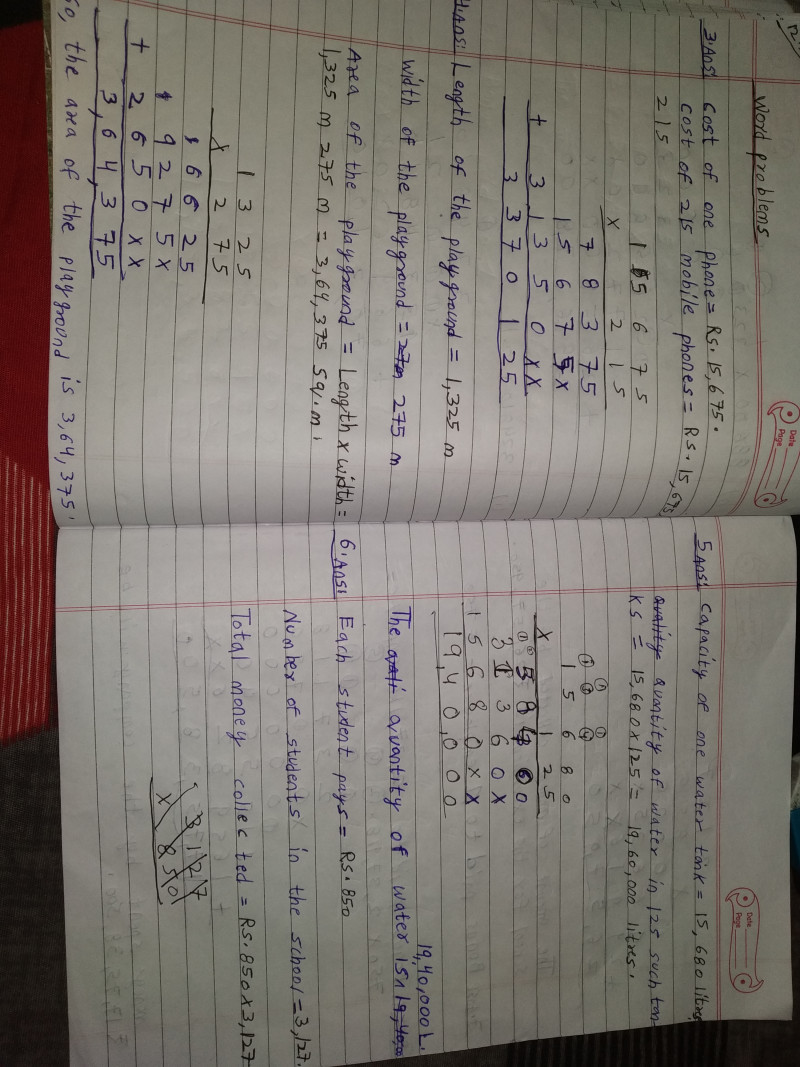 Word problems
Date
Page
3.Ans: Cost of one phone = Rs. 15,675.
Cost of 215 mobile phones = Rs. 15,675
215
1 5 6 7 5
x 2 1 5
7 8 3 7 5
1 5 6 7 5 x
+ 3 1 3 5 0 x x
3 3 7 0 1 2 5
Length of the playground = 1,325 m
width of the playground = 275 m
Area of the playground = Length x width =
1,325 m 275 m = 3,64,375 sq.m.
1 3 2 5
x 2 7 5
6 6 2 5
9 2 7 5 x
+ 2 6 5 0 x x
3,6 4,3 7 5
So, the area of the playground is 3,64,375.
Date
Page
5 Ans: Capacity of one water tank = 15,680 litres
quantity of water in 125 such tan
ks = 15,680 x 125 = 19,60,000 litres.
1 5 6 8 0
x 1 2 5
3 1 3 6 0 x
1 5 6 8 0 x x
19,4 0,0 0 0
19,40,000 L.
The quantity of water is
6.Ans: Each student pays = Rs. 850
Number of students in the school = 3,127.
Total money collected = Rs. 850 x 3,127
3 1 2 7
x 8 5 0